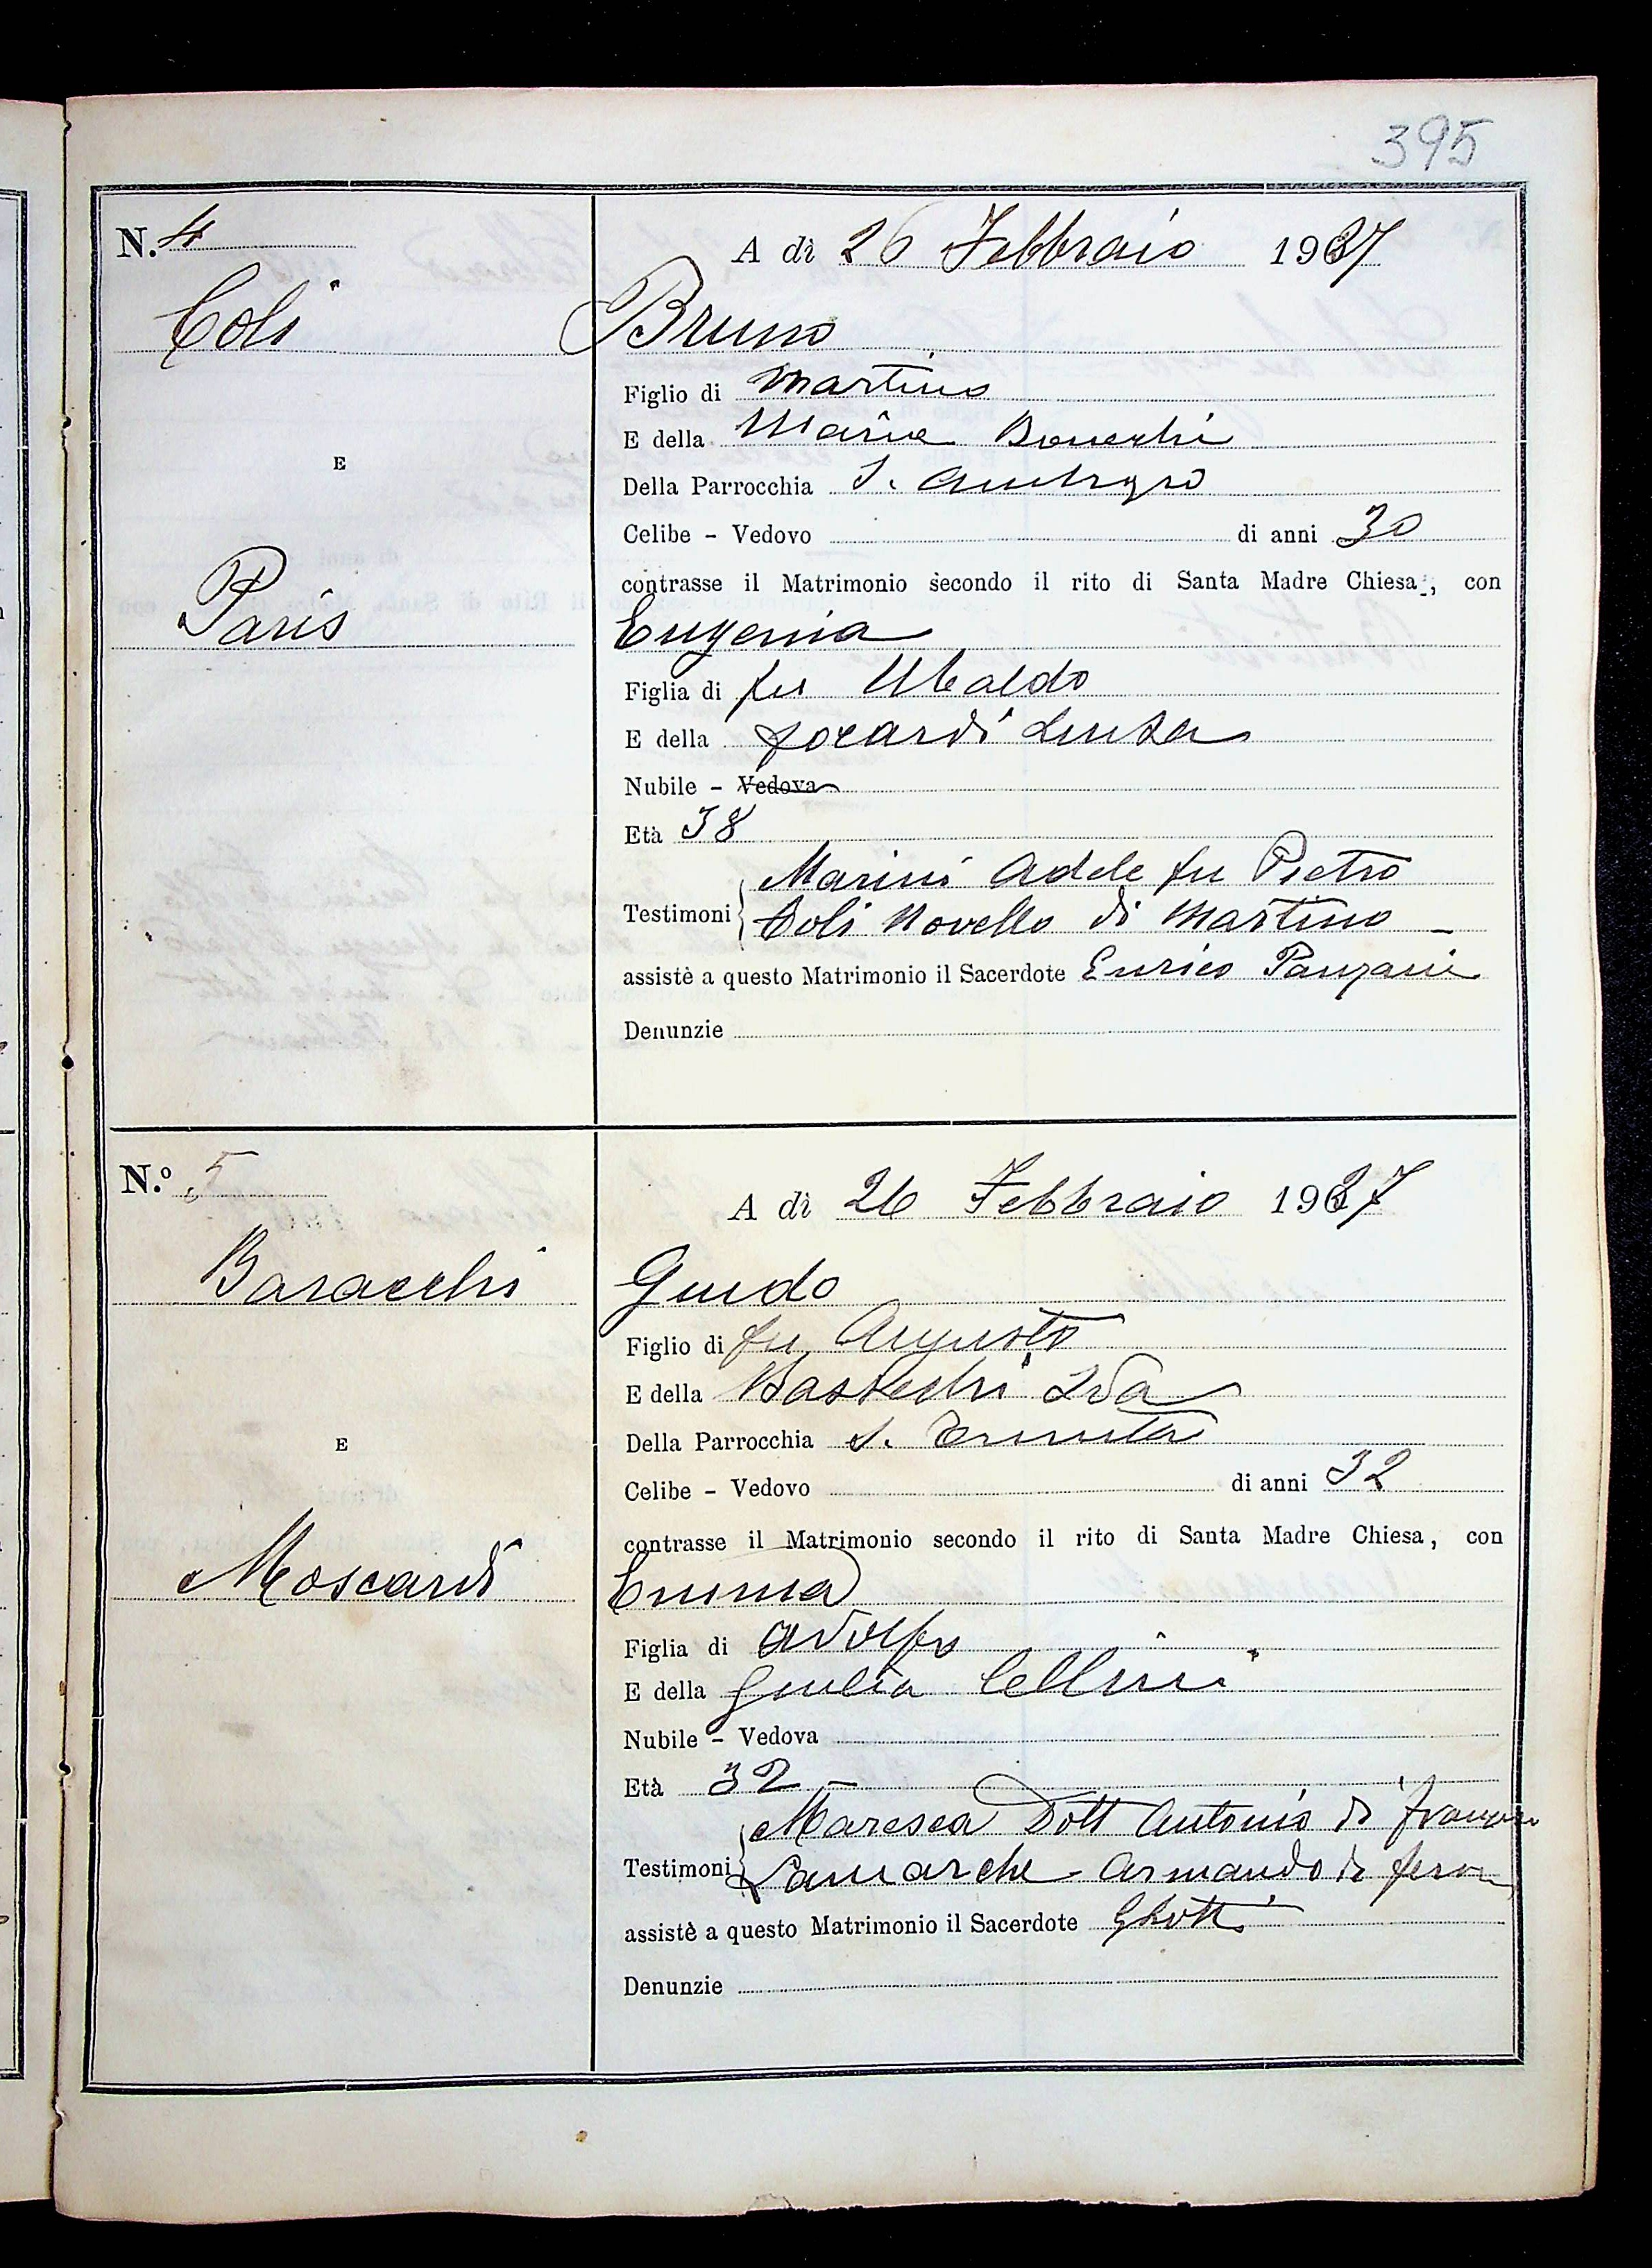 395
N. 4
A dì 26 Febbraio 1937
Coli Bruno
Figlio di Martino
E della Maria
E
Della Parrocchia S. Ambrogio
Celibe - Vedovo di anni 30
contrasse il Matrimonio secondo il rito di Santa Madre Chiesa, con
Paris Eugenia
Figlia di fu Ubaldo
E della Focardi Luisa
Nubile - Vedova
Età 38
Marini Adele fu Pietro
Testimoni Coli Novello di Martino
assistè a questo Matrimonio il Sacerdote Enrico Panzani
Denunzie
N.º 5
A dì 26 Febbraio 1937
Baracchi Guido
Figlio di fu Augusto
E della Ida
Della Parrocchia S. Trinita
E
Celibe - Vedovo di anni 32
contrasse il Matrimonio secondo il rito di Santa Madre Chiesa, con
Moscardi Emma
Figlia di Adolfo
E della Giulia Cellini
Nubile - Vedova
Età 32 -
Maresca Dott Antonio di
Testimoni Armando di
assistè a questo Matrimonio il Sacerdote
Denunzie